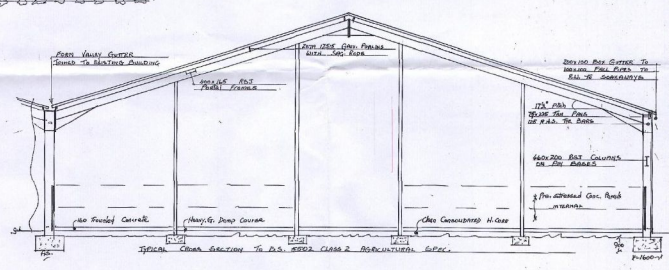 FORM VALLEY GUTTER
JOINED TO EXISTING BUILDING
400x165 RSJ
PORTAL FRAMES
20TH 1255 GALV. PURLINS
WITH SAG RODS
200x100 BOX GUTTER TO
100x100 FALL PIPES TO
R.W. TO SOAKAWAYS
17½° Pitch
TIE PADS
TIE BARS
460x200 RSJ COLUMNS
ON PAD BASES
Pre-stressed Conc. Panels
INTERNAL
150 Trowled Concrete
Heavy G. Damp Course
Consolidated H. Core
G.L.
900
TYPICAL CROSS SECTION TO B.S. 5502 CLASS 2 AGRICULTURAL SPEC.